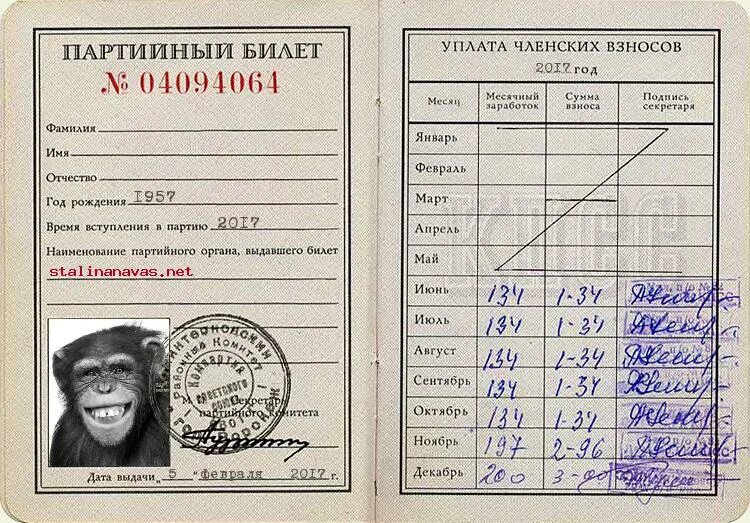 ПАРТИЙНЫЙ БИЛЕТ
№ 04094064
Фамилия
Имя
Отчество
Год рождения 1957
Время вступления в партию 2017
Наименование партийного органа, выдавшего билет
stalinanavas.net
Районный Комитет
Компартия
Советского
Союза
М Секретарь
партийного комитета
Дата выдачи „ 5 " февраля 2017 г.
УПЛАТА ЧЛЕНСКИХ ВЗНОСОВ
2017 год
Месяц Месячный заработок Сумма взноса Подпись секретаря
Январь
Февраль
Март
Апрель
Май
КПСС
Июнь 134 1-34
Июль 134 1-34
Август 134 1-34
Сентябрь 134 1-34
Октябрь 134 1-34
Ноябрь 197 2-96
Декабрь 200 3-00